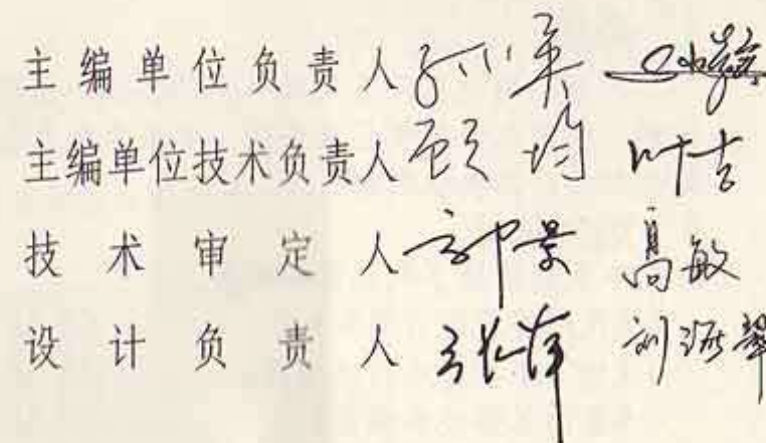 主编单位负责人 孙英
主编单位技术负责人 顾均 叶吉
技术审定人 郭景 高敏
设计负责人 张萍 刘